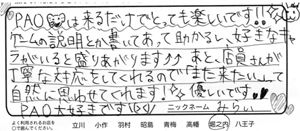 PAOは来るだけでとっても楽しいです!!
ゲームの説明とか書いてあって助かるし、好きなキャ
ラがいると盛りあがります♪♪ あと、店員さんが
丁寧な対応をしてくれるので「また来たい」って
自然に思わせてくれます!優しいです!!
PAO大好きです♡
ニックネーム みらい
よく利用されるお店を
○で囲んでください。
立川 小作 羽村 昭島 青梅 高幡 堀之内 八王子